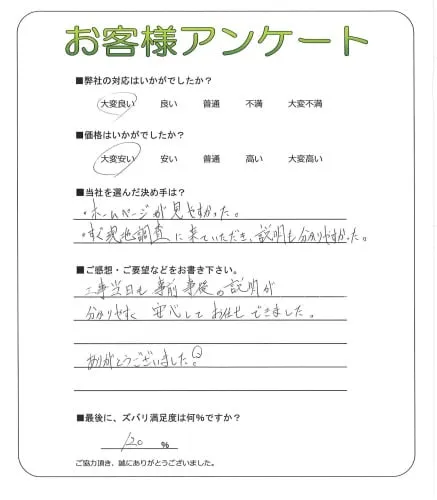 お客様アンケート
■弊社の対応はいかがでしたか?
大変良い 良い 普通 不満 大変不満
■価格はいかがでしたか?
大変安い 安い 普通 高い 大変高い
■当社を選んだ決め手は?
・ホームページが見やすかった。
・すぐ現地調査に来ていただき、説明も分かりやすかった。
■ご感想・ご要望などをお書き下さい。
工事当日も事前事後の説明が
分かりやすく安心してお任せできました。
ありがとうございました。
■最後に、ズバリ満足度は何%ですか?
120 %
ご協力頂き、誠にありがとうございました。